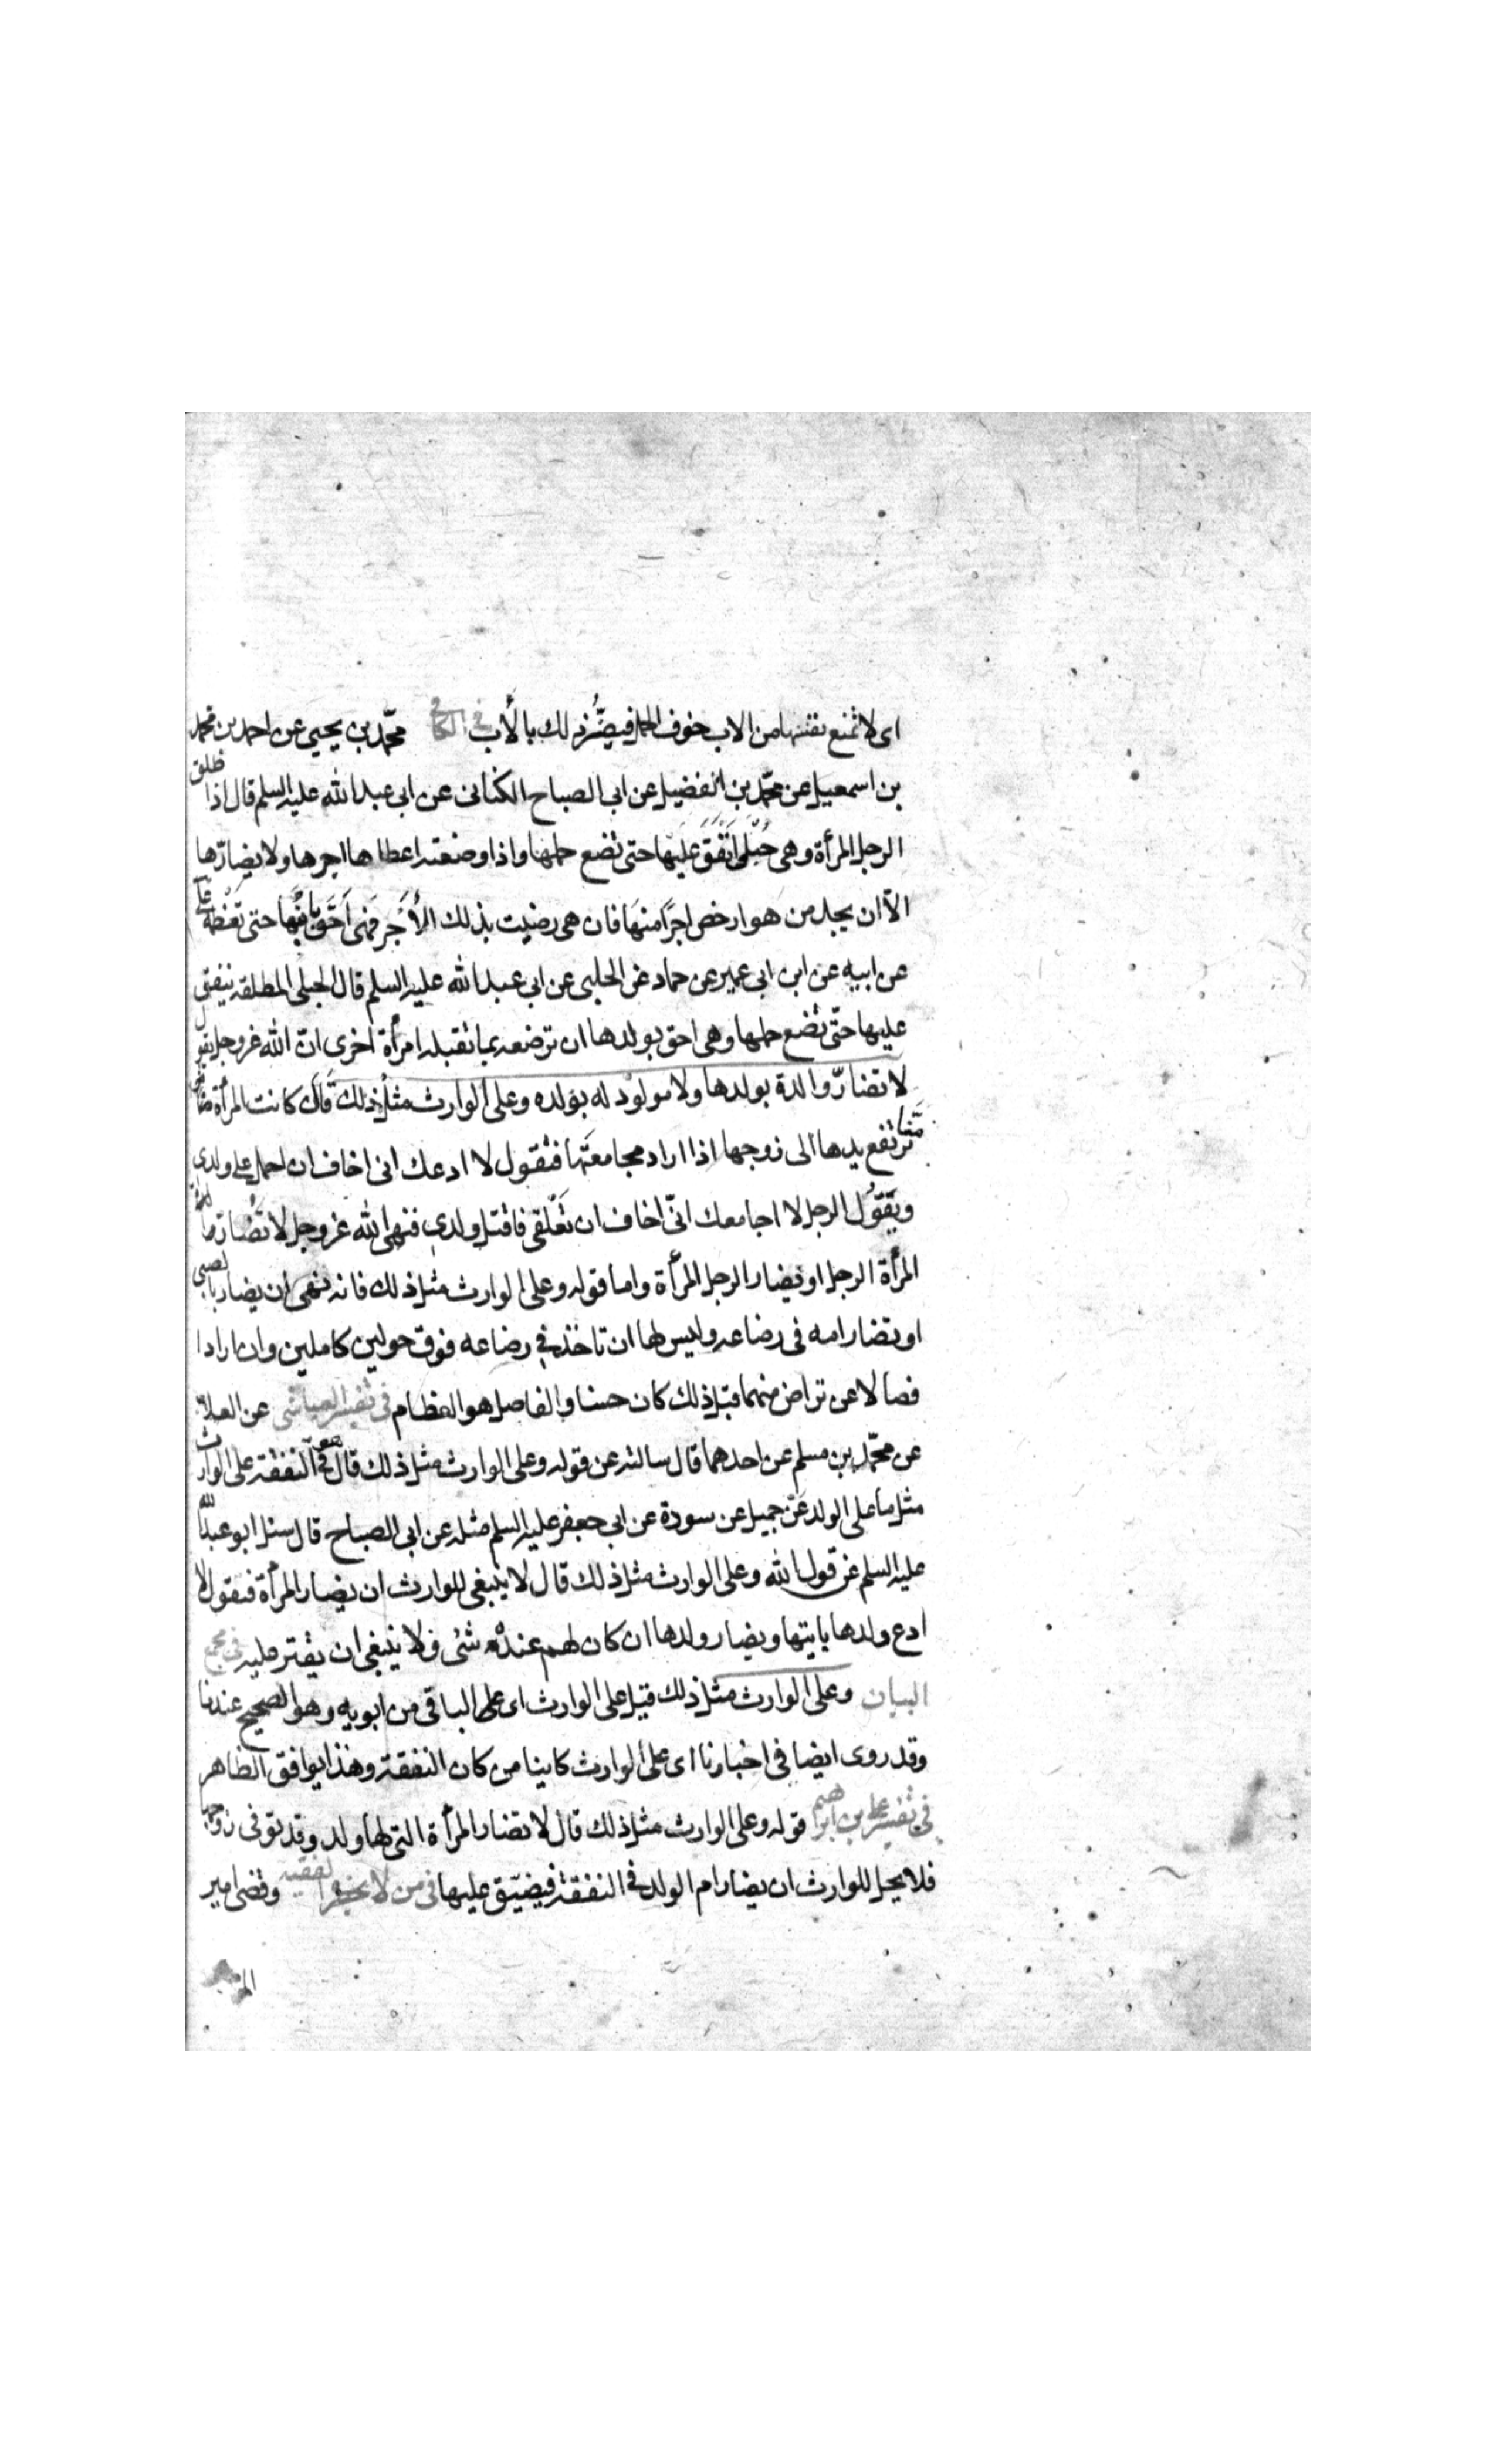 اى لا تمنع نفسها من الاب خوف الحمل فيضرّ ذلك بالأب فى الكافى محمّد بن يحيى عن احمد بن محمد
بن اسمعيل عن محمّد بن الفضيل عن ابى الصباح الكنانى عن ابى عبد الله عليه السلم قال اذا طلق
الرجل المرأة وهى حُبلى انفق عليها حتى تضع حملها واذا وضعته اعطاها اجرها ولا يضارّها
الّا ان يجد من هو ارخص اجرًا منها فان هى رضيت بذلك الأجر فهى احق بابنها حتى تفطمه على
عن ابيه عن ابن ابى عمير عن حماد عن الحلبى عن ابى عبد الله عليه السلم قال الحبلى المطلقه ينفق
عليها حتّى تضع حملها وهى احق بولدها ان ترضعه بما تقبله امرأة اخرى انّ الله عزوجل يقول
لا تضارّ والدة بولدها ولا مولود له بولده وعلى الوارث مثل ذلك قال كانت المرأة منّا
ترتفع يدها الى زوجها اذا اراد مجامعتها فتقول لا ادعك انى اخاف ان احمل على ولدى
ويقول الرجل لا اجامعك انّى اخاف ان تعلقى فاقتل ولدى فنهى الله عزوجل لا تضارّ
المرأة الرجل او يضار الرجل المرأة واما قوله وعلى الوارث مثل ذلك فانه نهى ان يضار بالصبى
او تضار امه فى رضاعه وليس لها ان تاخذ فى رضاعه فوق حولين كاملين وان ارادا
فصالا عن تراض منهما قبل ذلك كان حسنا والفاصل هو الفطام فى تفسير العياشى عن العلا
عن محمّد بن مسلم عن احدهما قال سالته عن قوله وعلى الوارث مثل ذلك قال هو فى النفقة على الوارث
مثل ما على الولد عن جميل عن سورة عن ابى جعفر عليه السلم مثله عن ابى الصباح قال سئل ابو عبد الله
عليه السلم عن قول الله وعلى الوارث مثل ذلك قال لا ينبغى للوارث ان يضار المرأة فيقول لا
ادع ولدها ياتيها ويضار ولدها ان كان لهم عنده شئ ولا ينبغى ان يقتر عليه فى مجمع
البيان وعلى الوارث مثل ذلك قيل على الوارث اى على الباقى من ابويه وهو الصحيح عندنا
وقد روى ايضا فى اخبارنا اى على الوارث كاينا من كان النفقة وهذا يوافق الظاهر
فى تفسير على بن ابرهيم قوله وعلى الوارث مثل ذلك قال لا تضار المرأة التى لها ولد وقد توفى زوجها
فلا يحل للوارث ان يضار ام الولد فى النفقة فيضيّق عليها فى من لا يحضره الفقيه وقضى امير